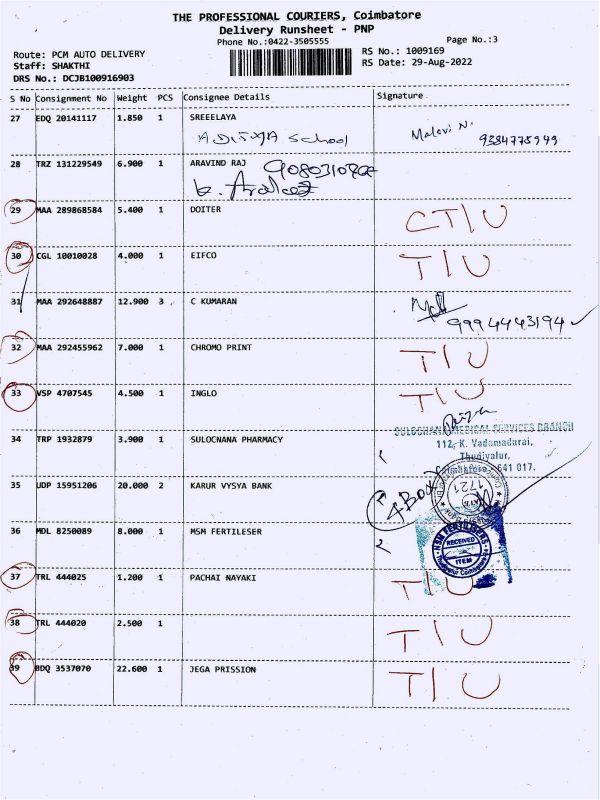 THE PROFESSIONAL COURIERS, Coimbatore
Delivery Runsheet - PNP
Phone No.:0422-3505555
Page No.:3
Route: PCM AUTO DELIVERY
RS No.: 1009169
Staff: SHAKTHI
RS Date: 29-Aug-2022
DRS No.: DCJB100916903
S No Consignment No Weight PCS Consignee Details Signature
27 EDQ 20141117 1.850 1 SREEELAYA
ADITYA School Malavi N. 9384775949
28 TRZ 131229549 6.900 1 ARAVIND RAJ
29 MAA 289868584 5.400 1 DOITER CT/U
30 CGL 10010028 4.000 1 EIFCO T/U
31 MAA 292648887 12.900 3 C KUMARAN
9994443194
32 MAA 292455962 7.000 1 CHROMO PRINT T/U
33 VSP 4707545 4.500 1 INGLO T/U
SULOCHANA MEDICAL SERVICES BRANCH
34 TRP 1932879 3.900 1 SULOCNANA PHARMACY 112, K. Vadamadurai,
Thudiyalur,
Coimbatore - 641 017.
35 UDP 15951206 20.000 2 KARUR VYSYA BANK
1721
36 MDL 8250089 8.000 1 MSM FERTILESER
RECEIVED
ITEM
37 TRL 444025 1.200 1 PACHAI NAYAKI T/U
38 TRL 444020 2.500 1 T/U
39 BDQ 3537070 22.600 1 JEGA PRISSION T/U